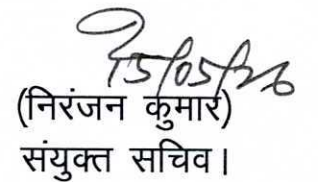 15/05/26
(निरंजन कुमार)
संयुक्त सचिव।